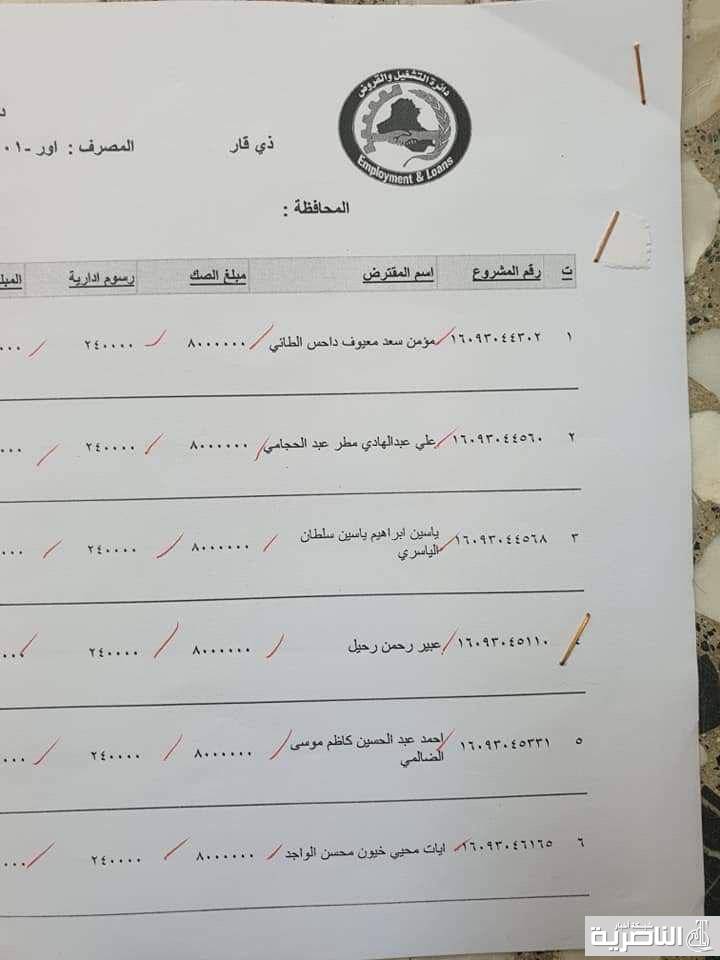 دائرة التشغيل والقروض
Employment & Loans
ذي قار
المصرف : اور -٠١
المحافظة :
ت رقم المشروع اسم المقترض مبلغ الصك رسوم ادارية
١ ١٦٠٩٣٠٤٤٣٠٢ مؤمن سعد معيوف داحس الطائي ٨٠٠٠٠٠٠ ٢٤٠٠٠٠
٢ ١٦٠٩٣٠٤٤٥٦٠ علي عبدالهادي مطر عبد الحجامي ٨٠٠٠٠٠٠ ٢٤٠٠٠٠
٣ ١٦٠٩٣٠٤٤٥٦٨ ياسين ابراهيم ياسين سلطان ٨٠٠٠٠٠٠ ٢٤٠٠٠٠
الياسري
١٦٠٩٣٠٤٥١١٠ عبير رحمن رحيل ٨٠٠٠٠٠٠ ٢٤٠٠٠٠
٥ ١٦٠٩٣٠٤٥٣٣١ احمد عبد الحسين كاظم موسى ٨٠٠٠٠٠٠ ٢٤٠٠٠٠
الضالمي
٦ ١٦٠٩٣٠٤٦١٦٥ ايات محيي خيون محسن الواجد ٨٠٠٠٠٠٠ ٢٤٠٠٠٠
شبكة اخبار
الناصرية